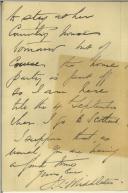 to stay at her
Country house
tomorrow but of
Course the house
party is put off
so I am here
till the 4 September
when I go to Scotland
I suppose that as
usual you are having
a good time
Yours Ever
Middleton